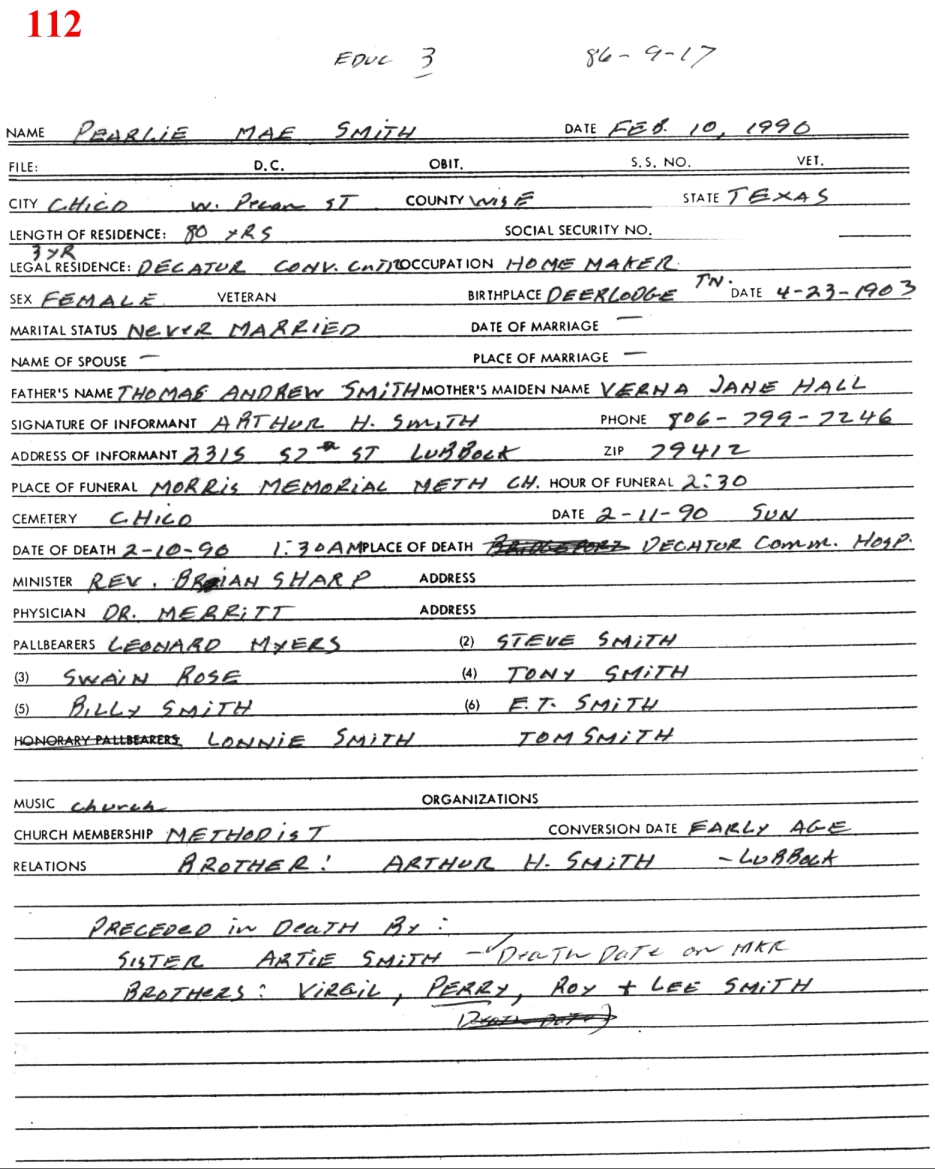 112
EDUC 3 86-9-17
NAME PEARLIE MAE SMITH DATE FEB. 10, 1990
FILE: D.C. OBIT. S.S. NO. VET.
CITY CHICO W. Pecan ST COUNTY WISE STATE TEXAS
LENGTH OF RESIDENCE: 80 YRS SOCIAL SECURITY NO.
3 YR
LEGAL RESIDENCE: DECATUR CONV. CNTR OCCUPATION HOME MAKER
SEX FEMALE VETERAN BIRTHPLACE DEERLODGE TN. DATE 4-23-1903
MARITAL STATUS NEVER MARRIED DATE OF MARRIAGE —
NAME OF SPOUSE — PLACE OF MARRIAGE —
FATHER'S NAME THOMAS ANDREW SMITH MOTHER'S MAIDEN NAME VERNA JANE HALL
SIGNATURE OF INFORMANT ARTHUR H. SMITH PHONE 806-799-7246
ADDRESS OF INFORMANT 2315 52nd ST LUBBOCK ZIP 79412
PLACE OF FUNERAL MORRIS MEMORIAL METH CH. HOUR OF FUNERAL 2:30
CEMETERY CHICO DATE 2-11-90 SUN
DATE OF DEATH 2-10-90 1:30AM PLACE OF DEATH BRIDGEPORT DECATUR COMM. HOSP.
MINISTER REV. BRIAN SHARP ADDRESS
PHYSICIAN DR. MERRITT ADDRESS
PALLBEARERS LEONARD MYERS (2) STEVE SMITH
(3) SWAIN ROSE (4) TONY SMITH
(5) BILLY SMITH (6) E.T. SMITH
HONORARY PALLBEARERS LONNIE SMITH TOM SMITH
MUSIC church ORGANIZATIONS
CHURCH MEMBERSHIP METHODIST CONVERSION DATE EARLY AGE
RELATIONS BROTHER: ARTHUR H. SMITH - LUBBOCK
PRECEDED in DEATH BY:
SISTER ARTIE SMITH - ✓DEATH DATE on MKR
BROTHERS: VIRGIL, PERRY, ROY + LEE SMITH
(DEATH DATE)